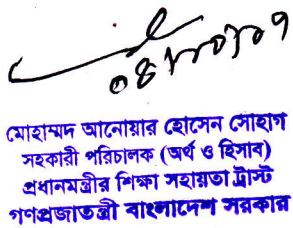 মোহাম্মদ আনোয়ার হোসেন সোহাগ
সহকারী পরিচালক (অর্থ ও হিসাব)
প্রধানমন্ত্রীর শিক্ষা সহায়তা ট্রাস্ট
গণপ্রজাতন্ত্রী বাংলাদেশ সরকার